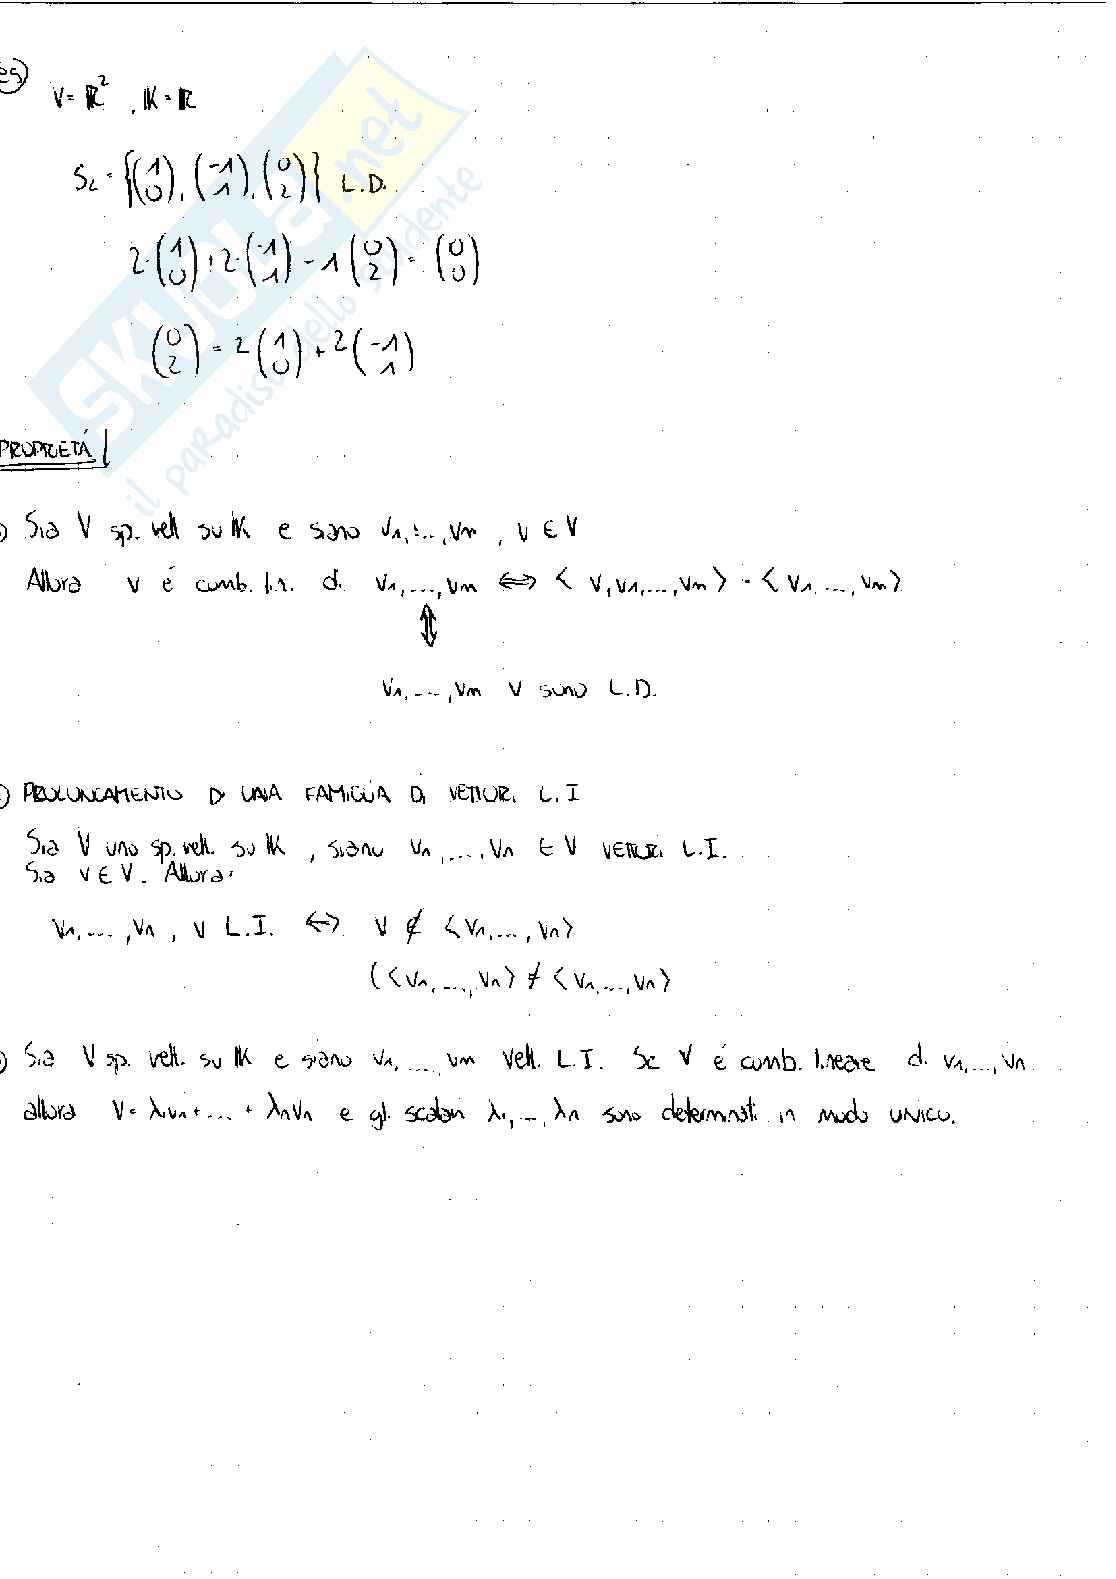 es
V = ℝ² , 𝕂 = ℝ
S₂ = {(1 0), (-1 1), (0 2)} L.D.
2·(1 0) + 2·(-1 1) - 1(0 2) = (0 0)
(0 2) = 2(1 0) + 2(-1 1)
SKUOLA.net
il paradiso dello studente
PROPRIETÀ
) Sia V sp. vett su 𝕂 e siano v₁, ..., vₘ , v ∈ V
Allora v é comb. lin. di v₁, ..., vₘ ⟺ < v, v₁, ..., vₘ > = < v₁, ..., vₘ >
⇕
v₁, ..., vₘ v sono L.D.
) PROLUNGAMENTO DI UNA FAMIGLIA DI VETTORI L.I
Sia V uno sp. vett. su 𝕂 , siano v₁, ..., vₙ ∈ V VETTORI L.I.
Sia v ∈ V. Allora:
v₁, ..., vₙ , v L.I. ⟺ v ∉ <v₁, ..., vₙ>
(<v₁, ..., vₙ> ≠ <v₁, ..., vₙ>
) Sia V sp. vett. su 𝕂 e siano v₁, ..., vₘ vett. L.I. Se V é comb. lineare di v₁, ..., vₙ
allora V = λ₁v₁ + ... + λₙvₙ e gli scalari λ₁, ..., λₙ sono determinati in modo unico.